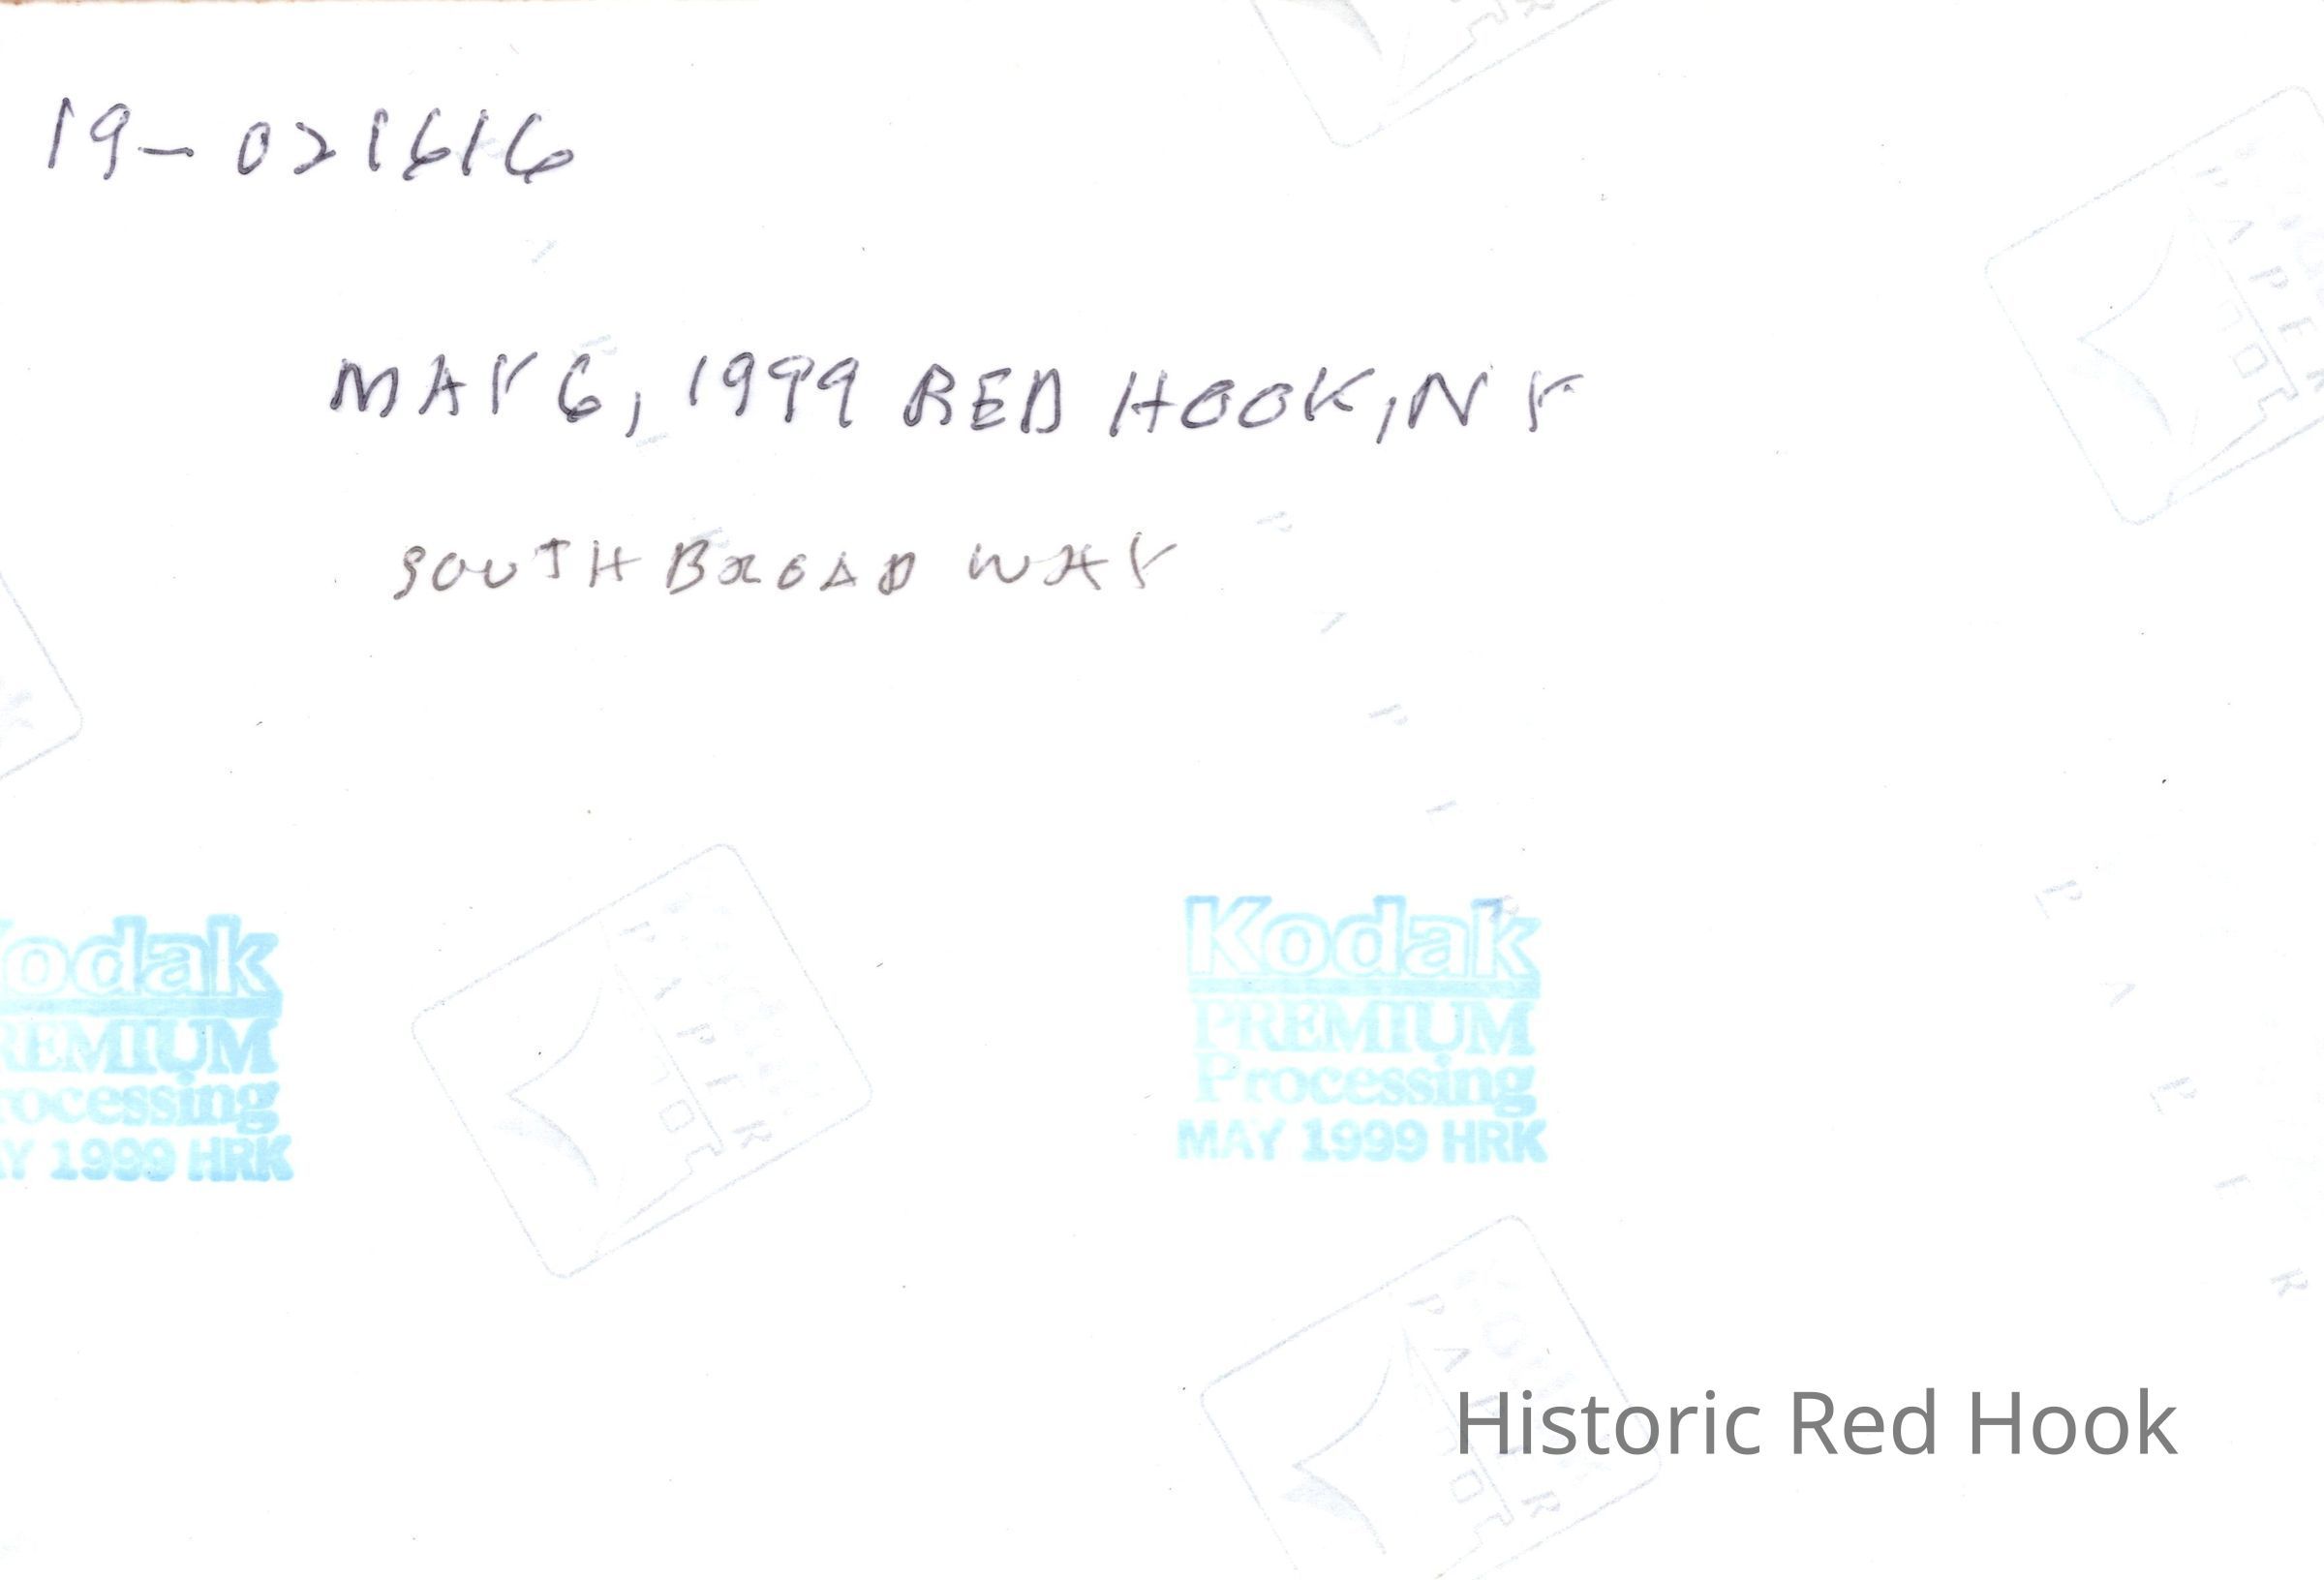 19-021616
MAY 6, 1999 RED HOOK, NY
SOUTH BROADWAY
Kodak
PREMIUM
Processing
MAY 1999 HRK
odak
REMIUM
rocessing
AY 1999 HRK
PAPER
PAPER
PAPER
Historic Red Hook